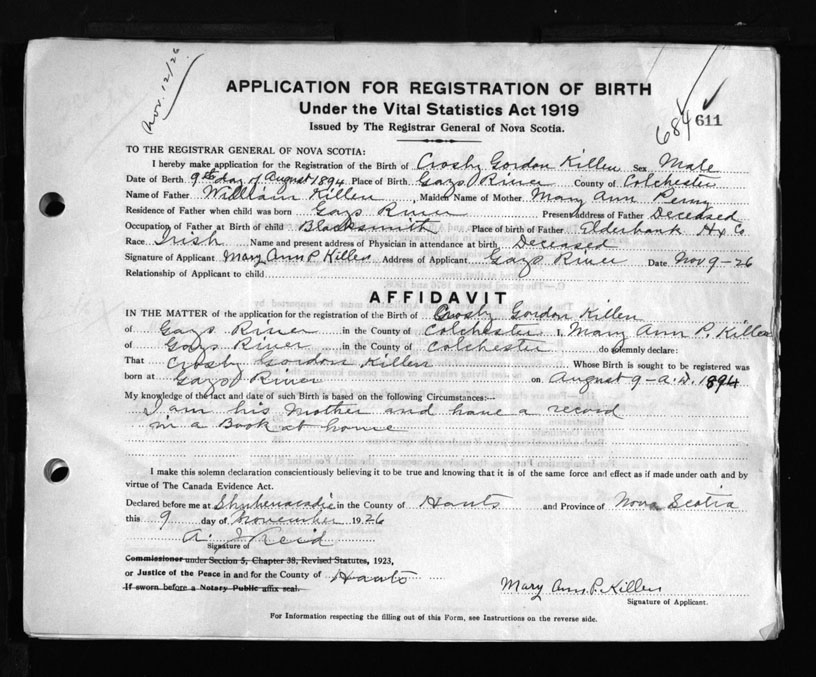 Nov. 12/26
APPLICATION FOR REGISTRATION OF BIRTH
Under the Vital Statistics Act 1919
Issued by The Registrar General of Nova Scotia.
684 611
TO THE REGISTRAR GENERAL OF NOVA SCOTIA:
I hereby make application for the Registration of the Birth of Crosby Gordon Killen Sex Male
Date of Birth 9th day of August 1894 Place of Birth Gays River County of Colchester
Name of Father William Killen, Maiden Name of Mother Mary Ann Perry
Residence of Father when child was born Gays River Present Address of Father Deceased
Occupation of Father at Birth of child Blacksmith Place of Birth of Father Elderbank Hx Co
Race Irish Name and present address of Physician in attendance at birth, Deceased
Signature of Applicant Mary Ann P. Killen Address of Applicant Gays River Date Nov 9-26
Relationship of Applicant to child
AFFIDAVIT
IN THE MATTER of the application for the registration of the Birth of Crosby Gordon Killen
of Gays River in the County of Colchester I, Mary Ann P. Killen
of Gays River in the County of Colchester do solemnly declare:
That Crosby Gordon Killen Whose Birth is sought to be registered was
born at Gays River on August 9-A.D. 1894
My knowledge of the fact and date of such Birth is based on the following Circumstances:—
I am his Mother and have a record
in a Book at home
I make this solemn declaration conscientiously believing it to be true and knowing that it is of the same force and effect as if made under oath and by
virtue of The Canada Evidence Act.
Declared before me at Shubenacadie in the County of Hants and Province of Nova Scotia
this 9 day of November 1926
A. J Reid
Signature of
Commissioner under Section 5, Chapter 38, Revised Statutes, 1923,
or Justice of the Peace in and for the County of Hants
If sworn before a Notary Public affix seal.
Mary Ann P. Killen
Signature of Applicant.
For Information respecting the filling out of this Form, see Instructions on the reverse side.